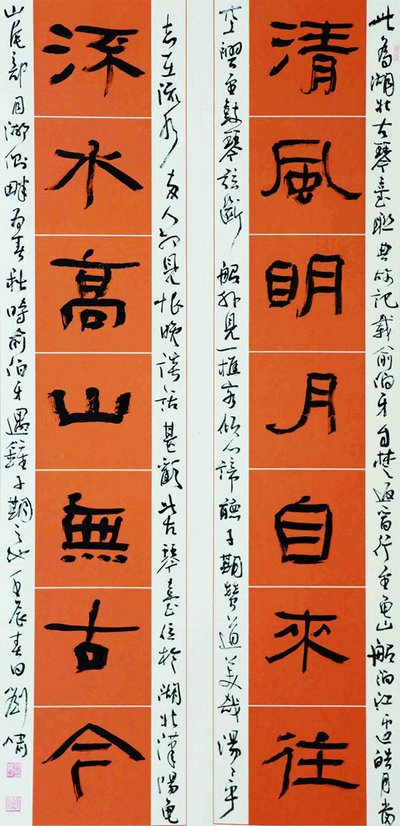 此為湖北古琴臺聯典故記載俞伯牙自楚返晉行至龜山船泊江邊皓月當
清風明月自來往
空興至鼓琴弦斷船外見一樵客傾心諦聽子期贊道美哉湯湯乎
志在流水友人初見恨晚談話甚歡此古琴臺位於湖北漢陽龜
流水高山無古今
山尾部月湖側畔為春秋時俞伯牙遇鍾子期之地壬辰春日劉